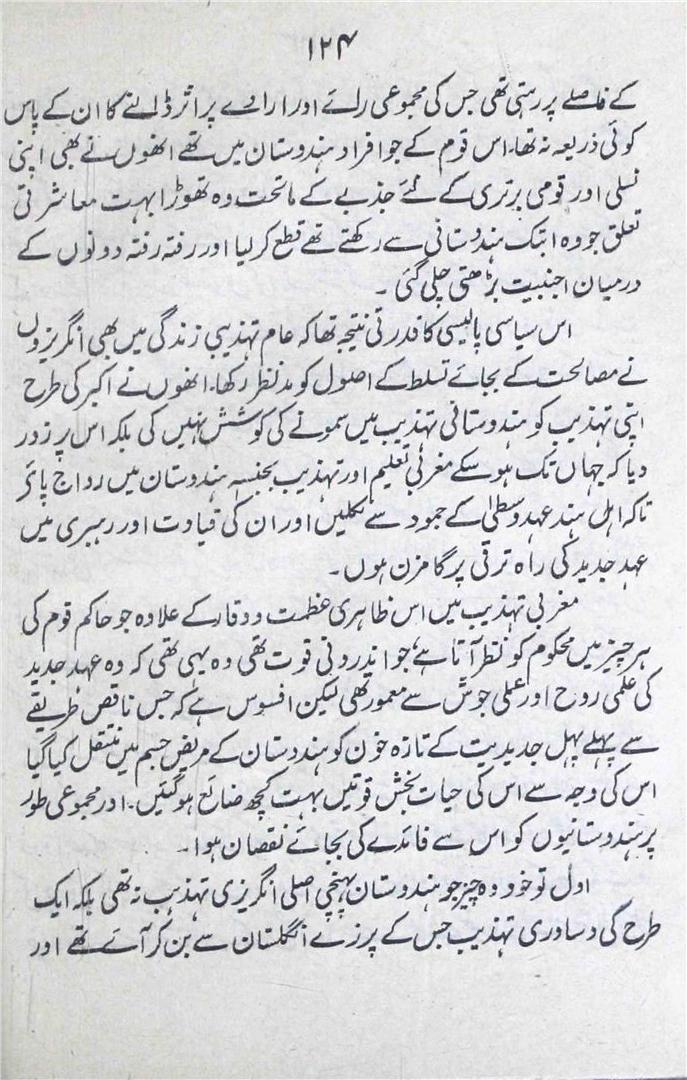 ۱۲۴
کے فاصلے پر رہتی تھی جس کی مجموعی رائے اور ارادے پر اثر ڈالنے کا ان کے پاس
کوئی ذریعہ نہ تھا۔ اس قوم کے جو افراد ہندوستان میں تھے انھوں نے بھی اپنی
نسلی اور قومی برتری کے نئے جذبے کے ماتحت وہ تھوڑا بہت معاشرتی
تعلق جو وہ ابتک ہندوستانی سے رکھتے تھے قطع کر لیا اور رفتہ رفتہ دونوں کے
درمیان اجنبیت بڑھتی چلی گئی ۔
اس سیاسی پالیسی کا قدرتی نتیجہ تھا کہ عام تہذیبی زندگی میں بھی انگریزوں
نے مصالحت کے بجائے تسلط کے اصول کو مدنظر رکھا۔ انھوں نے اکبر کی طرح
اپنی تہذیب کو ہندوستانی تہذیب میں سمونے کی کوشش نہیں کی بلکہ اس پر زور
دیا کہ جہاں تک ہو سکے مغربی تعلیم اور تہذیب بجنسہ ہندوستان میں رواج پائے
تاکہ اہل ہند عہد وسطیٰ کے جمود سے نکلیں اور ان کی قیادت اور رہبری میں
عہد جدید کی راہ ترقی پر گامزن ہوں ۔
مغربی تہذیب میں اس ظاہری عظمت و وقار کے علاوہ جو حاکم قوم کی
ہر چیز میں محکوم کو نظر آتا ہے، جو اندرونی قوت تھی وہ یہی تھی کہ وہ عہد جدید
کی علمی روح اور عملی جوش سے معمور تھی لیکن افسوس ہے کہ جس ناقص طریقے
سے پہلے پہل جدیدیت کے تازہ خون کو ہندوستان کے مریض جسم میں منتقل کیا گیا
اس کی وجہ سے اس کی حیات بخش قوتیں بہت کچھ ضائع ہوگئیں۔ اور مجموعی طور
پر ہندوستانیوں کو اس سے فائدے کی بجائے نقصان ہوا۔
اول تو خود وہ چیز جو ہندوستان پہنچی اصلی انگریزی تہذیب نہ تھی بلکہ ایک
طرح کی دساوری تہذیب جس کے پرزے انگلستان سے بن کر آئے تھے اور